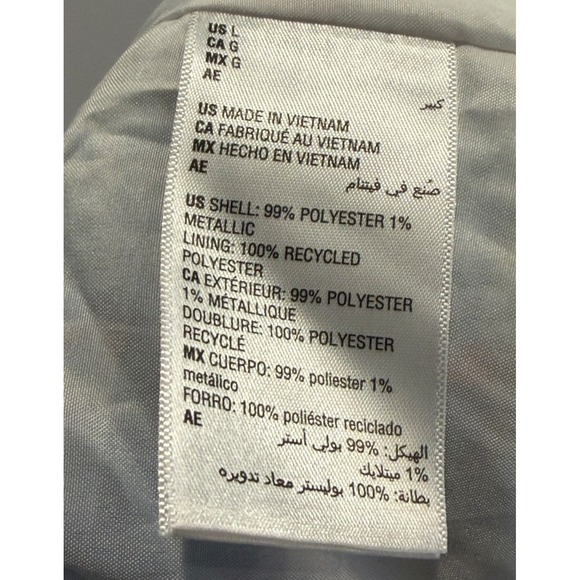 US L
CA G
MX G
AE
كبير
US MADE IN VIETNAM
CA FABRIQUÉ AU VIETNAM
MX HECHO EN VIETNAM
AE
صُنع في فيتنام
US SHELL: 99% POLYESTER 1%
METALLIC
LINING: 100% RECYCLED
POLYESTER
CA EXTÉRIEUR: 99% POLYESTER
1% MÉTALLIQUE
DOUBLURE: 100% POLYESTER
RECYCLÉ
MX CUERPO: 99% poliester 1%
metálico
FORRO: 100% poliéster reciclado
AE
الهيكل: 99% بولي أستر
1% ميتلايك
بطانة: 100% بوليستر معاد تدويره